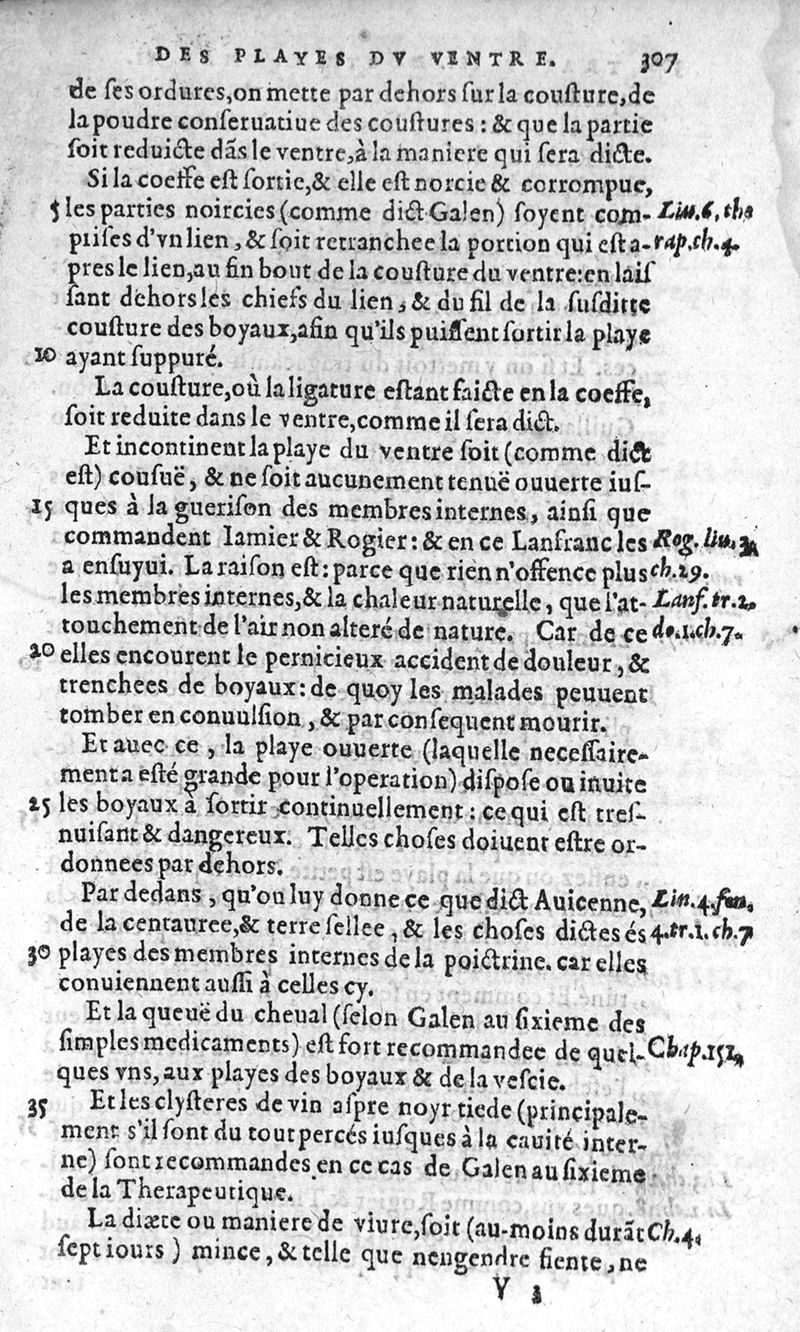 DES PLAYES DV VENTRE. 307
de ſes ordures,on mette par dehors ſur la couſture,de
la poudre conſeruatiue des couſtures : & que la partie
ſoit reduicte dãs le ventre,à la maniere qui ſera dicte.
Si la coeffe eſt ſortie,& elle eſt norcie & corrompue,
5 les parties noircies (comme dict Galen) ſoyent com- Liu.6. the
priſes d'vn lien , & ſoit retranchee la portion qui eſt a- rap.ch.4.
pres le lien,au fin bout de la couſture du ventre:en laiſ
ſant dehors les chiefs du lien , & du fil de la ſuſditte
couſture des boyaux,afin qu'ils puiſſent ſortir la playe
10 ayant ſuppuré.
La couſture,où la ligature eſtant faicte en la coeffe,
ſoit reduite dans le ventre,comme il ſera dict.
Et incontinent la playe du ventre ſoit (comme dict
eſt) couſuë , & ne ſoit aucunement tenuë ouuerte iuſ-
15 ques à la gueriſon des membres internes, ainſi que
commandent Iamier & Rogier : & en ce Lanfranc les Rog. liu. 3.
a enſuyui. La raiſon eſt : parce que rien n'offence plus ch.29.
les membres internes,& la chaleur naturelle , que l'at- Lanf.tr.2.
touchement de l'air non alteré de nature. Car de ce do.1.ch.7.
20 elles encourent le pernicieux accident de douleur , &
trenchees de boyaux : de quoy les malades peuuent
tomber en conuulſion , & par conſequent mourir.
Et auec ce , la playe ouuerte (laquelle neceſſaire-
ment a eſté grande pour l'operation) diſpoſe ou inuite
25 les boyaux à ſortir continuellement : ce qui eſt treſ-
nuiſant & dangereux. Telles choſes doiuent eſtre or-
donnees par dehors.
Par dedans , qu'on luy donne ce que dict Auicenne, Liu.4.fen.
de la centauree,& terre ſellee , & les choſes dictes és 4.tr.1.ch.7
30 playes des membres internes de la poictrine. car elles
conuiennent auſſi à celles cy.
Et la queuë du cheual (ſelon Galen au ſixieme des
ſimples medicaments) eſt fort recommandee de quel- Chap.151.
ques vns, aux playes des boyaux & de la veſcie.
35 Et les clyſteres de vin aſpre noyr tiede (principale-
ment s'il ſont du tout percés iuſques à la cauité inter-
ne) ſont recommandes en ce cas de Galen au ſixieme
de la Therapeutique.
La diæte ou maniere de viure,ſoit (au-moins durãt Ch.4.
ſept iours ) mince , & telle que nengendre fiente , ne
V 2